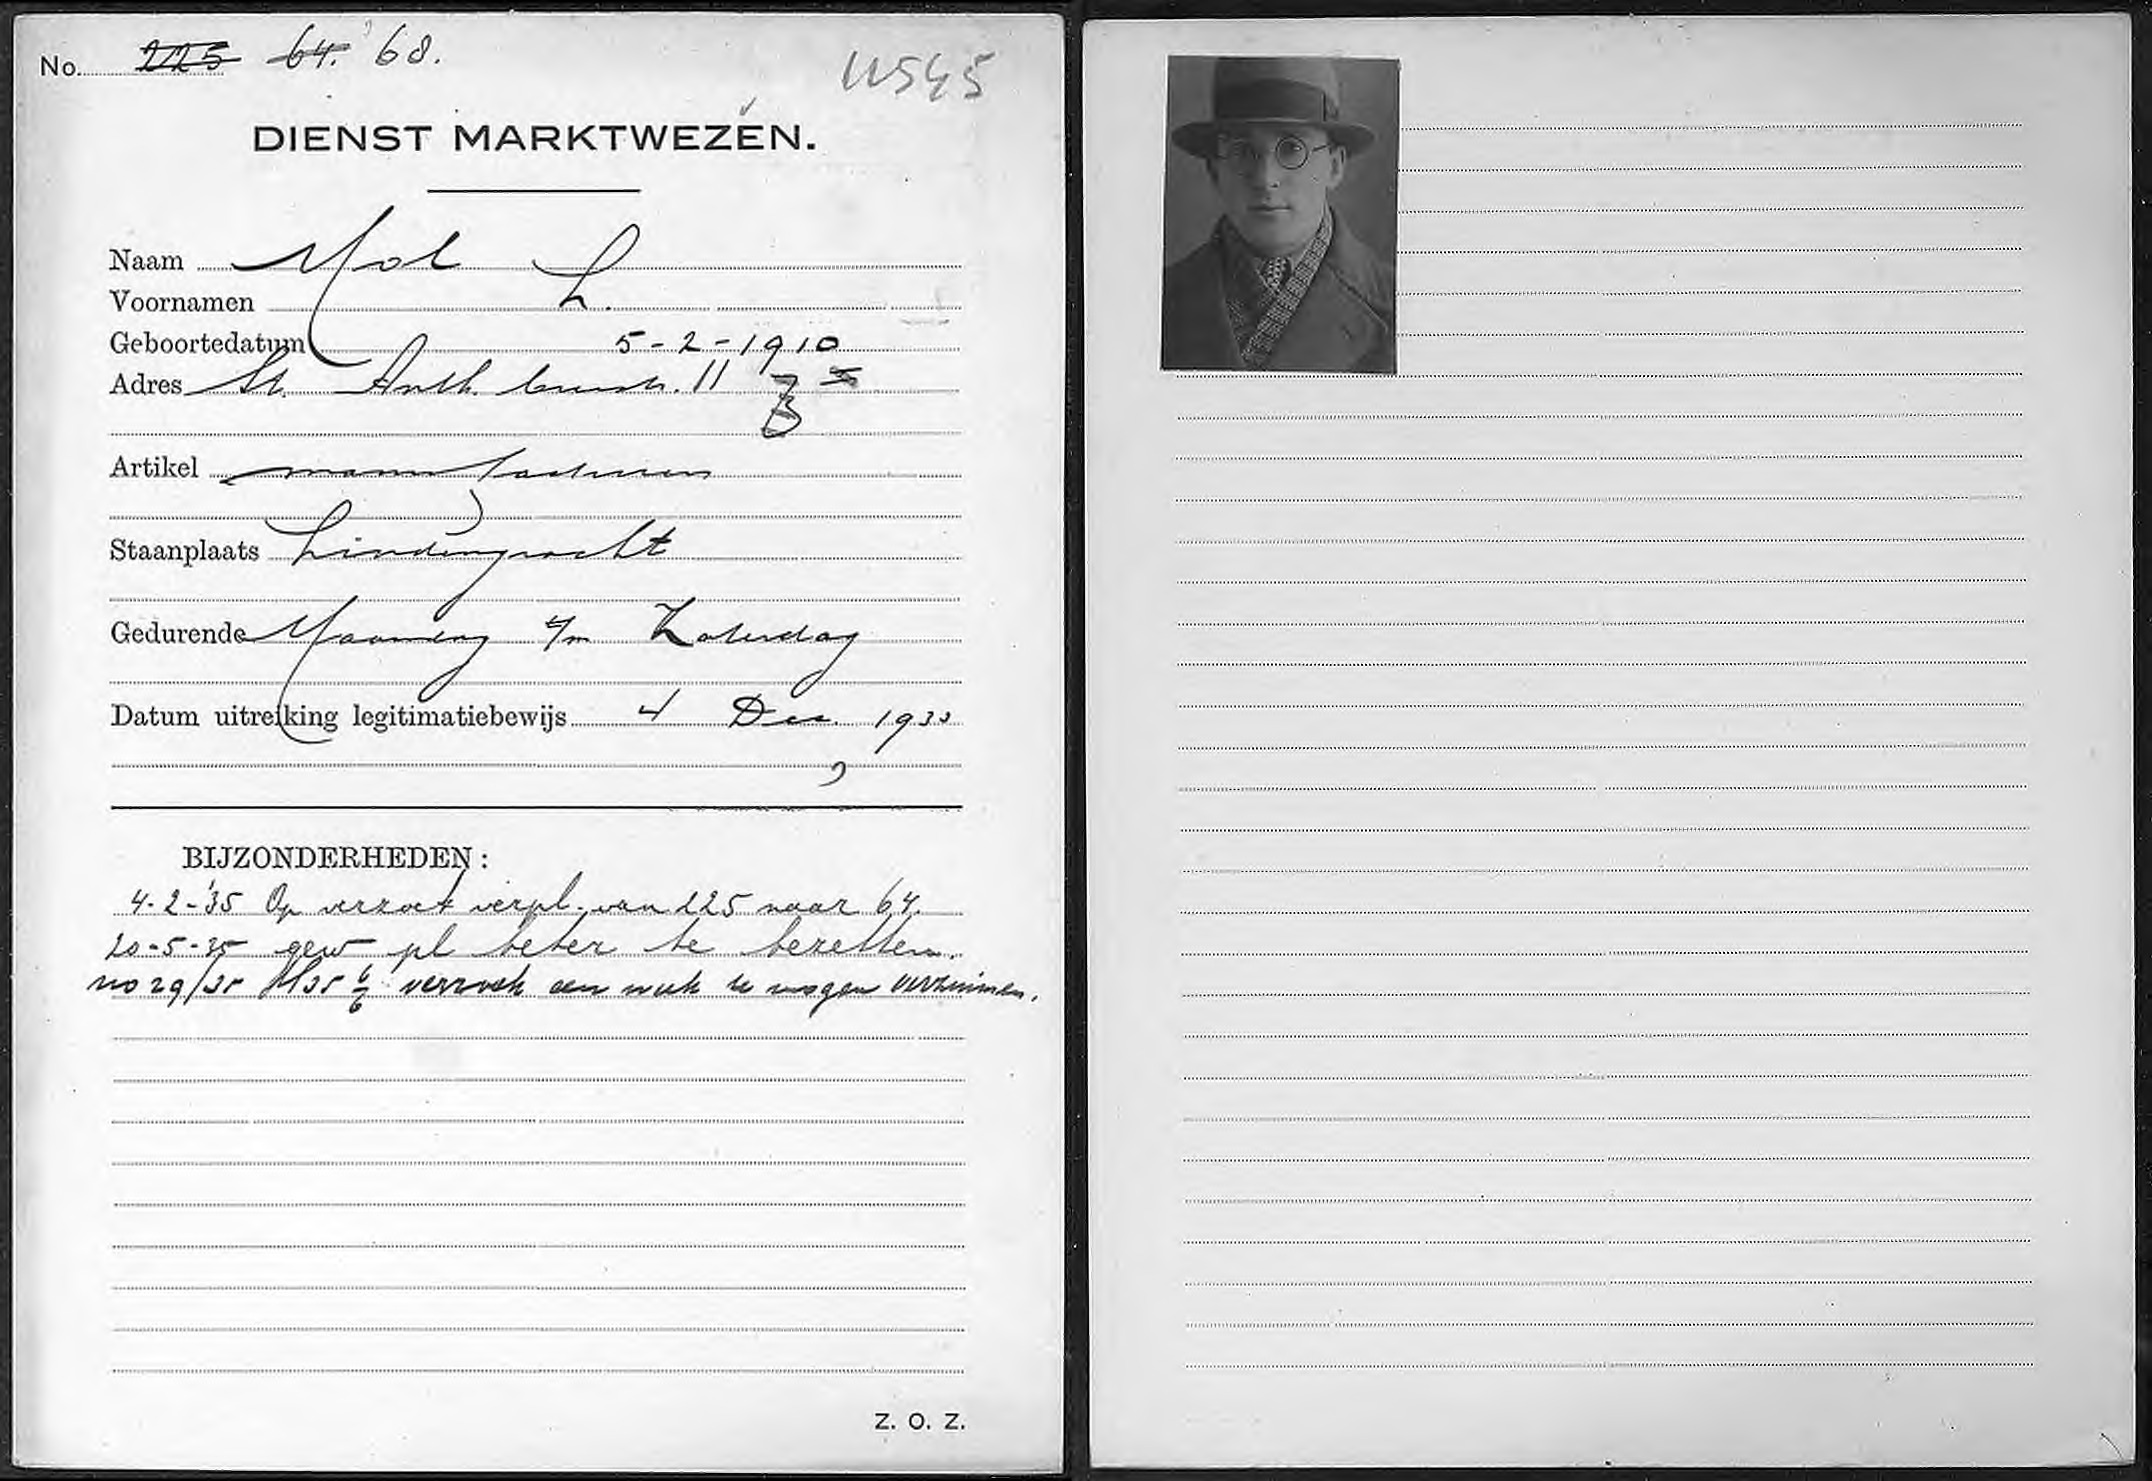 No. 225 64. 68.
DIENST MARKTWEZEN.
Naam Mol L
Voornamen L.
Geboortedatum 5-2-1910
Adres St. Anth. breestr. 11
Artikel manufacturen
Staanplaats Lindengracht
Gedurende Maandag t/m Zaterdag
Datum uitreiking legitimatiebewijs 4 Dec. 1933
BIJZONDERHEDEN:
4-2-'35 Op verzoek verpl. van 225 naar 64.
20-5-35 gew pl beter te bezetten.
no 29/35 verzoek een week te mogen verzuimen.
Z. O. Z.